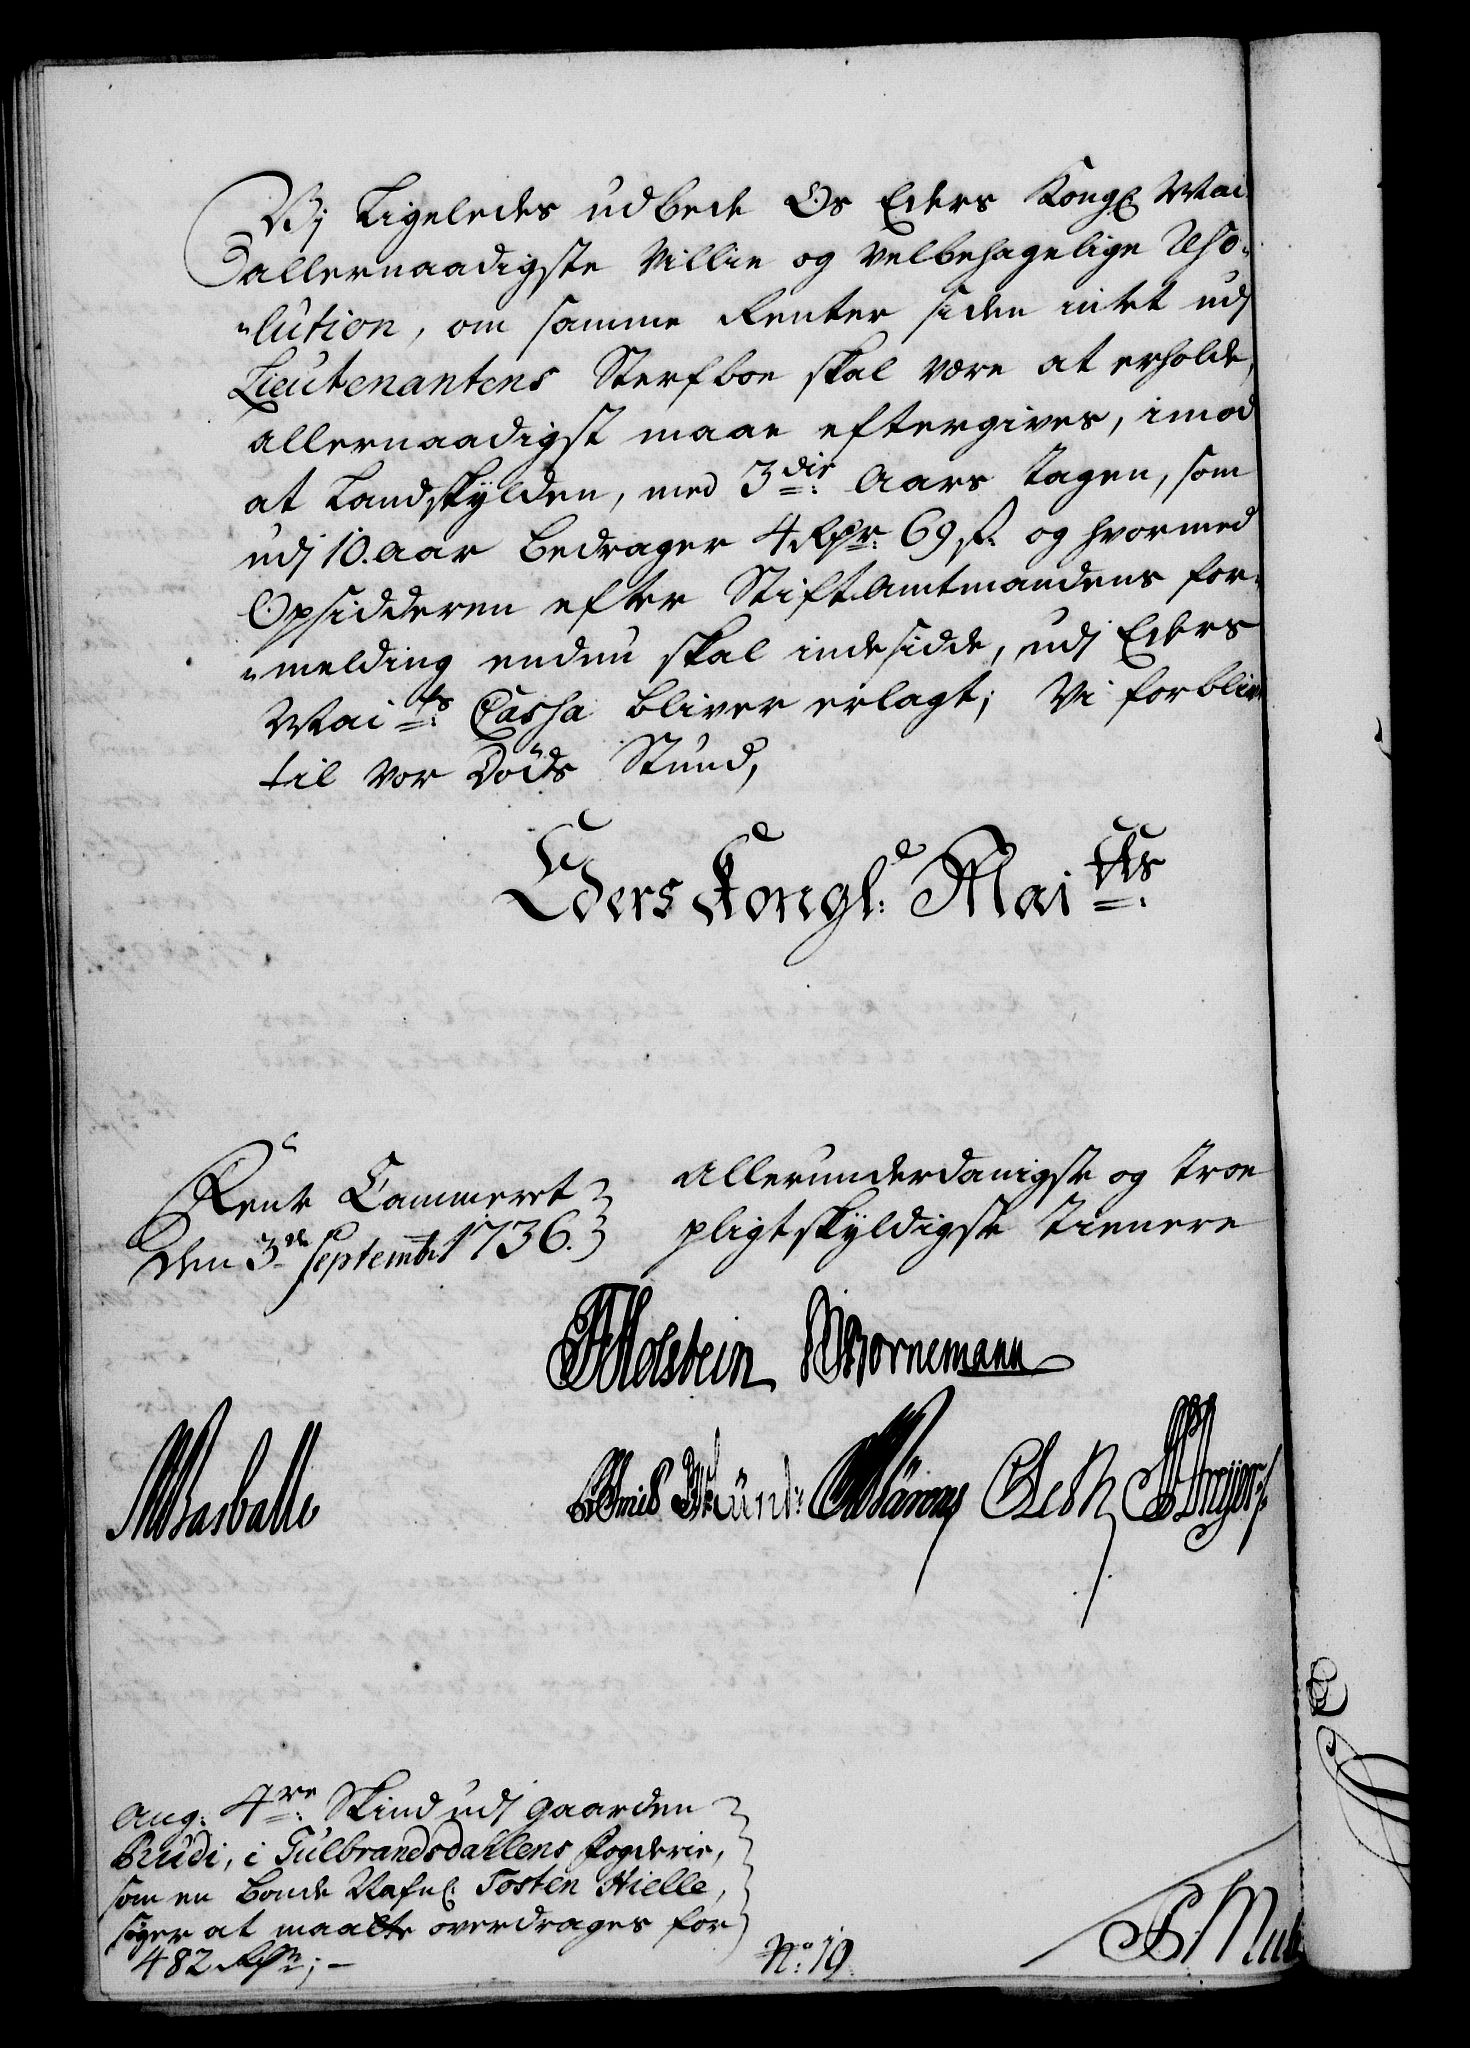 Vi Ligeledes udbede Os Eders Kongl Mai
allernaadigste Villie og velbehagelige Reso-
lution, om samme Renter siden intet udj
Lieutenantens Sterfboe skal være at erholde,
allernaadigst maae eftergives, imod
at Landskylden, med 3die Aars Tagen, som
udj 10. Aar bedrager 4 Rdr: 69 s. og hvormed
Opsidderen efter StiftAmtmandens for-
melding endnu skal indesidde, udj Eders
Maits Cassa bliver erlagt; Vi forblive
til vor Døds Stund,
Eders Kongl: Maitts
Rente Cammeret
den 3de Septembr 1736.
Allerunderdanigste og troe
pligtskyldigste Tienere
Holstein Bornemann
Basballe
Dreyer
Ang: 4re Skind udj gaarden
Rudi, i Gulbrandsdahlens fogderie,
som en Bonde Nafnl: Tosten Hielle,
siger at maatte overdrages for
482 Rdr; -
No: 19